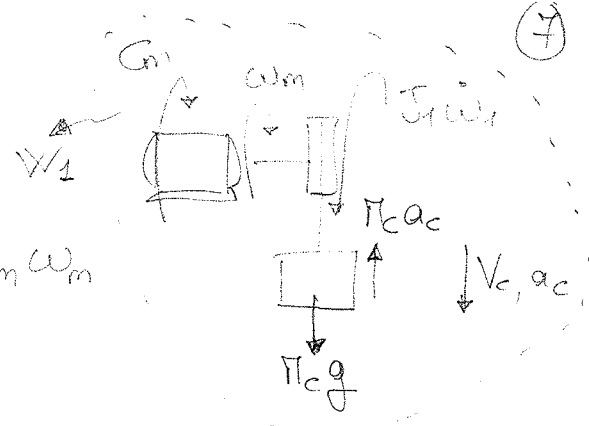 7
Cm
ωm
J₁ω̇₁
W₁
M_c a_c
m ωm
V_c, a_c,
M_c g